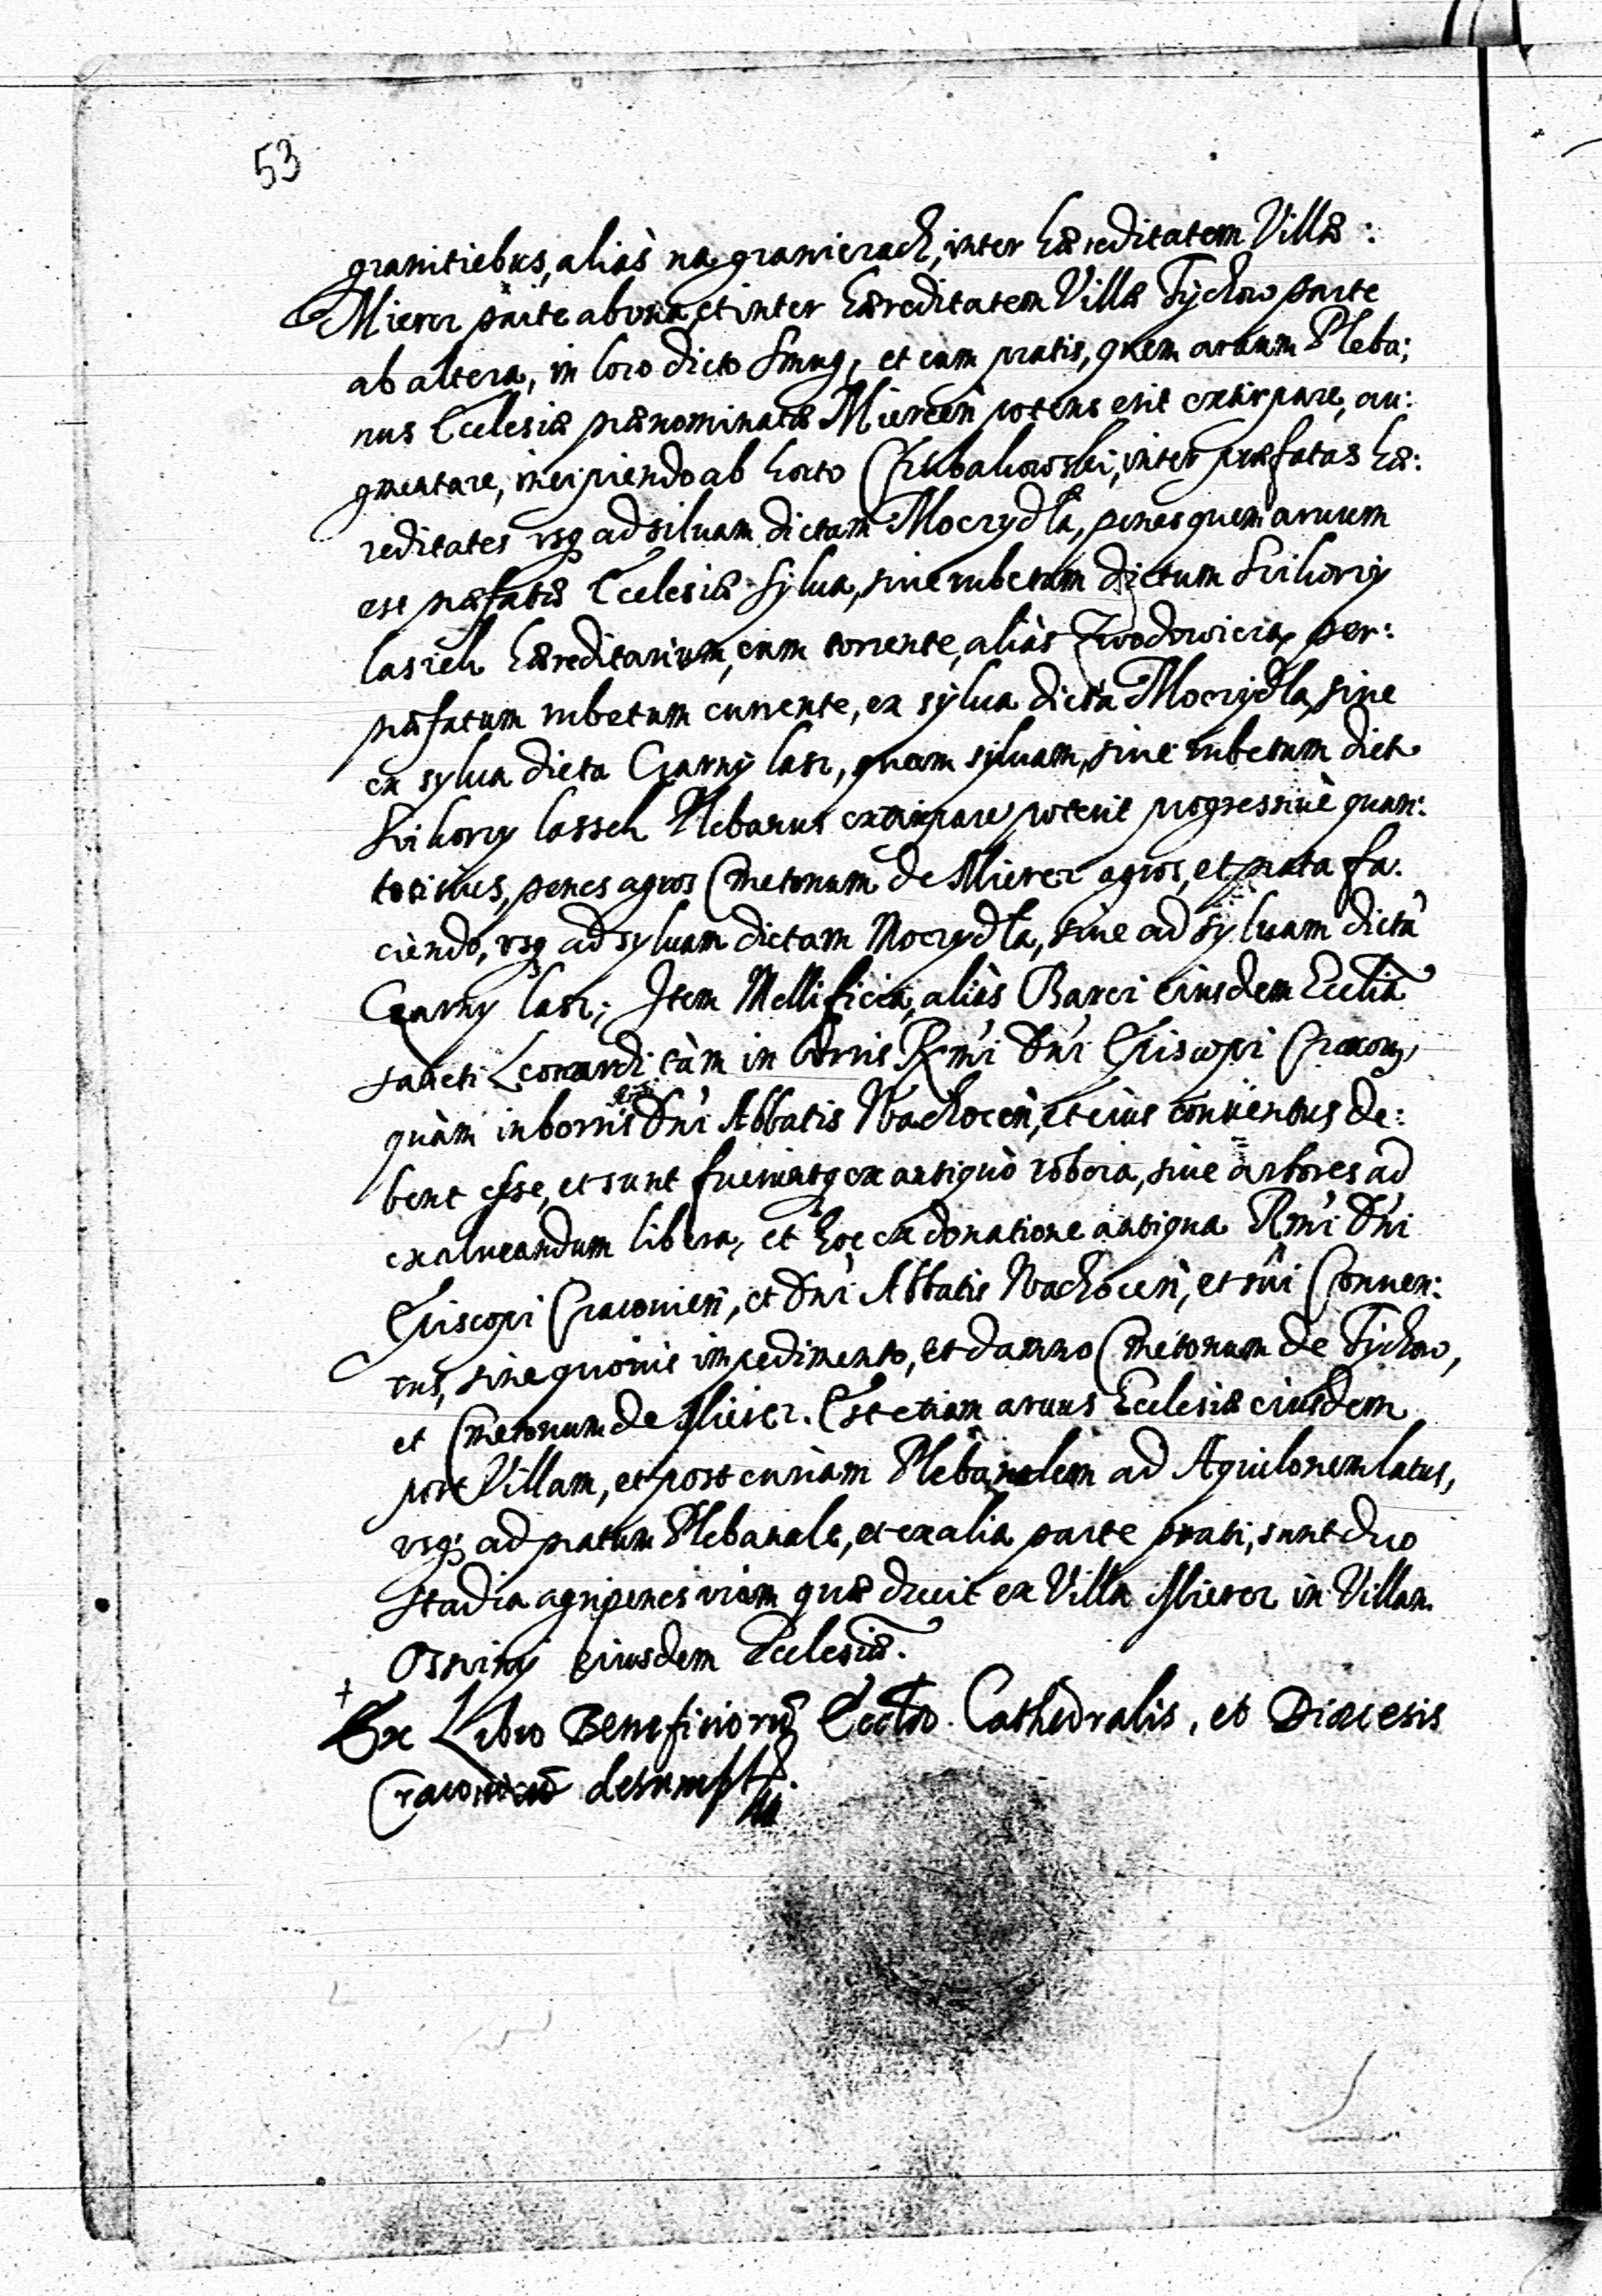 53
granitiebus, aliàs na graniczach, inter hæreditatem Villæ:
Mierez parte ab una, et inter hæreditatem Villæ Tychow parte
ab altera, in loco dicto Smug, et cum pratis, quem aruum Pleba:
nus Ecclesiæ prænominatæ Miercen potens erit extirpare, au:
gmentare, incipiendo ab horto inter præfatas hæ:
reditates vsq ad siluam dictam Moczydła, penes quem aruum
est præfatæ Ecclesiæ sylua, siue rubetum dictum Sikorzy
lasieh hæreditarium, cum torrente, aliàs per:
præfatum rubetum currente, ex sylua dicta Moczydła, siue
ex sylua dicta Czarny lasz, quam syluam, siue rubetum dict
Sikorzy lassek Plebanus extirpare poterit progressiuè quan:
tocius, penes agros Cmetonum de Mierez agros, et prata fa:
ciendo, vsq ad syluam dictam Moczydła, siue ad syluam dictã
Czarny lasz; Item Mellificia, aliàs Barci eiusdem Ecclíæ
sancti Leonardi tàm in borris Rm̃i Dñi Episcopi Cracoñ,
quàm in borris Dñi Abbatis Wachoceñ, et eius conuentus de:
bent esse, et sunt fueruntq ex antiquò robora, siue arbores ad
exalueandum libera, et hoc ex donatione antiqua Rm̃i Dñi
Episcopi Cracouieñ, et Dñi Abbatis Wachoceñ, et sui Conuen:
tus, sine quouis impedimento, et damno Cmetonum de Tychow,
et Cmetonum de Mierez. Est etiam aruus Ecclesiæ eiusdem
post Villam, et post curiam Plebanalem ad Aquilonem latus,
vsq; ad pratum Plebanale, et ex alia parte prati, sunt duo
stadia agri penes viam quæ ducit ex Villa Mierez in Villam
Ossiny eiusdem Ecclesiæ.
+
Ex Libro Beneficiorũ Eccłæ Cathedralis, et Diæcesis
desumpt